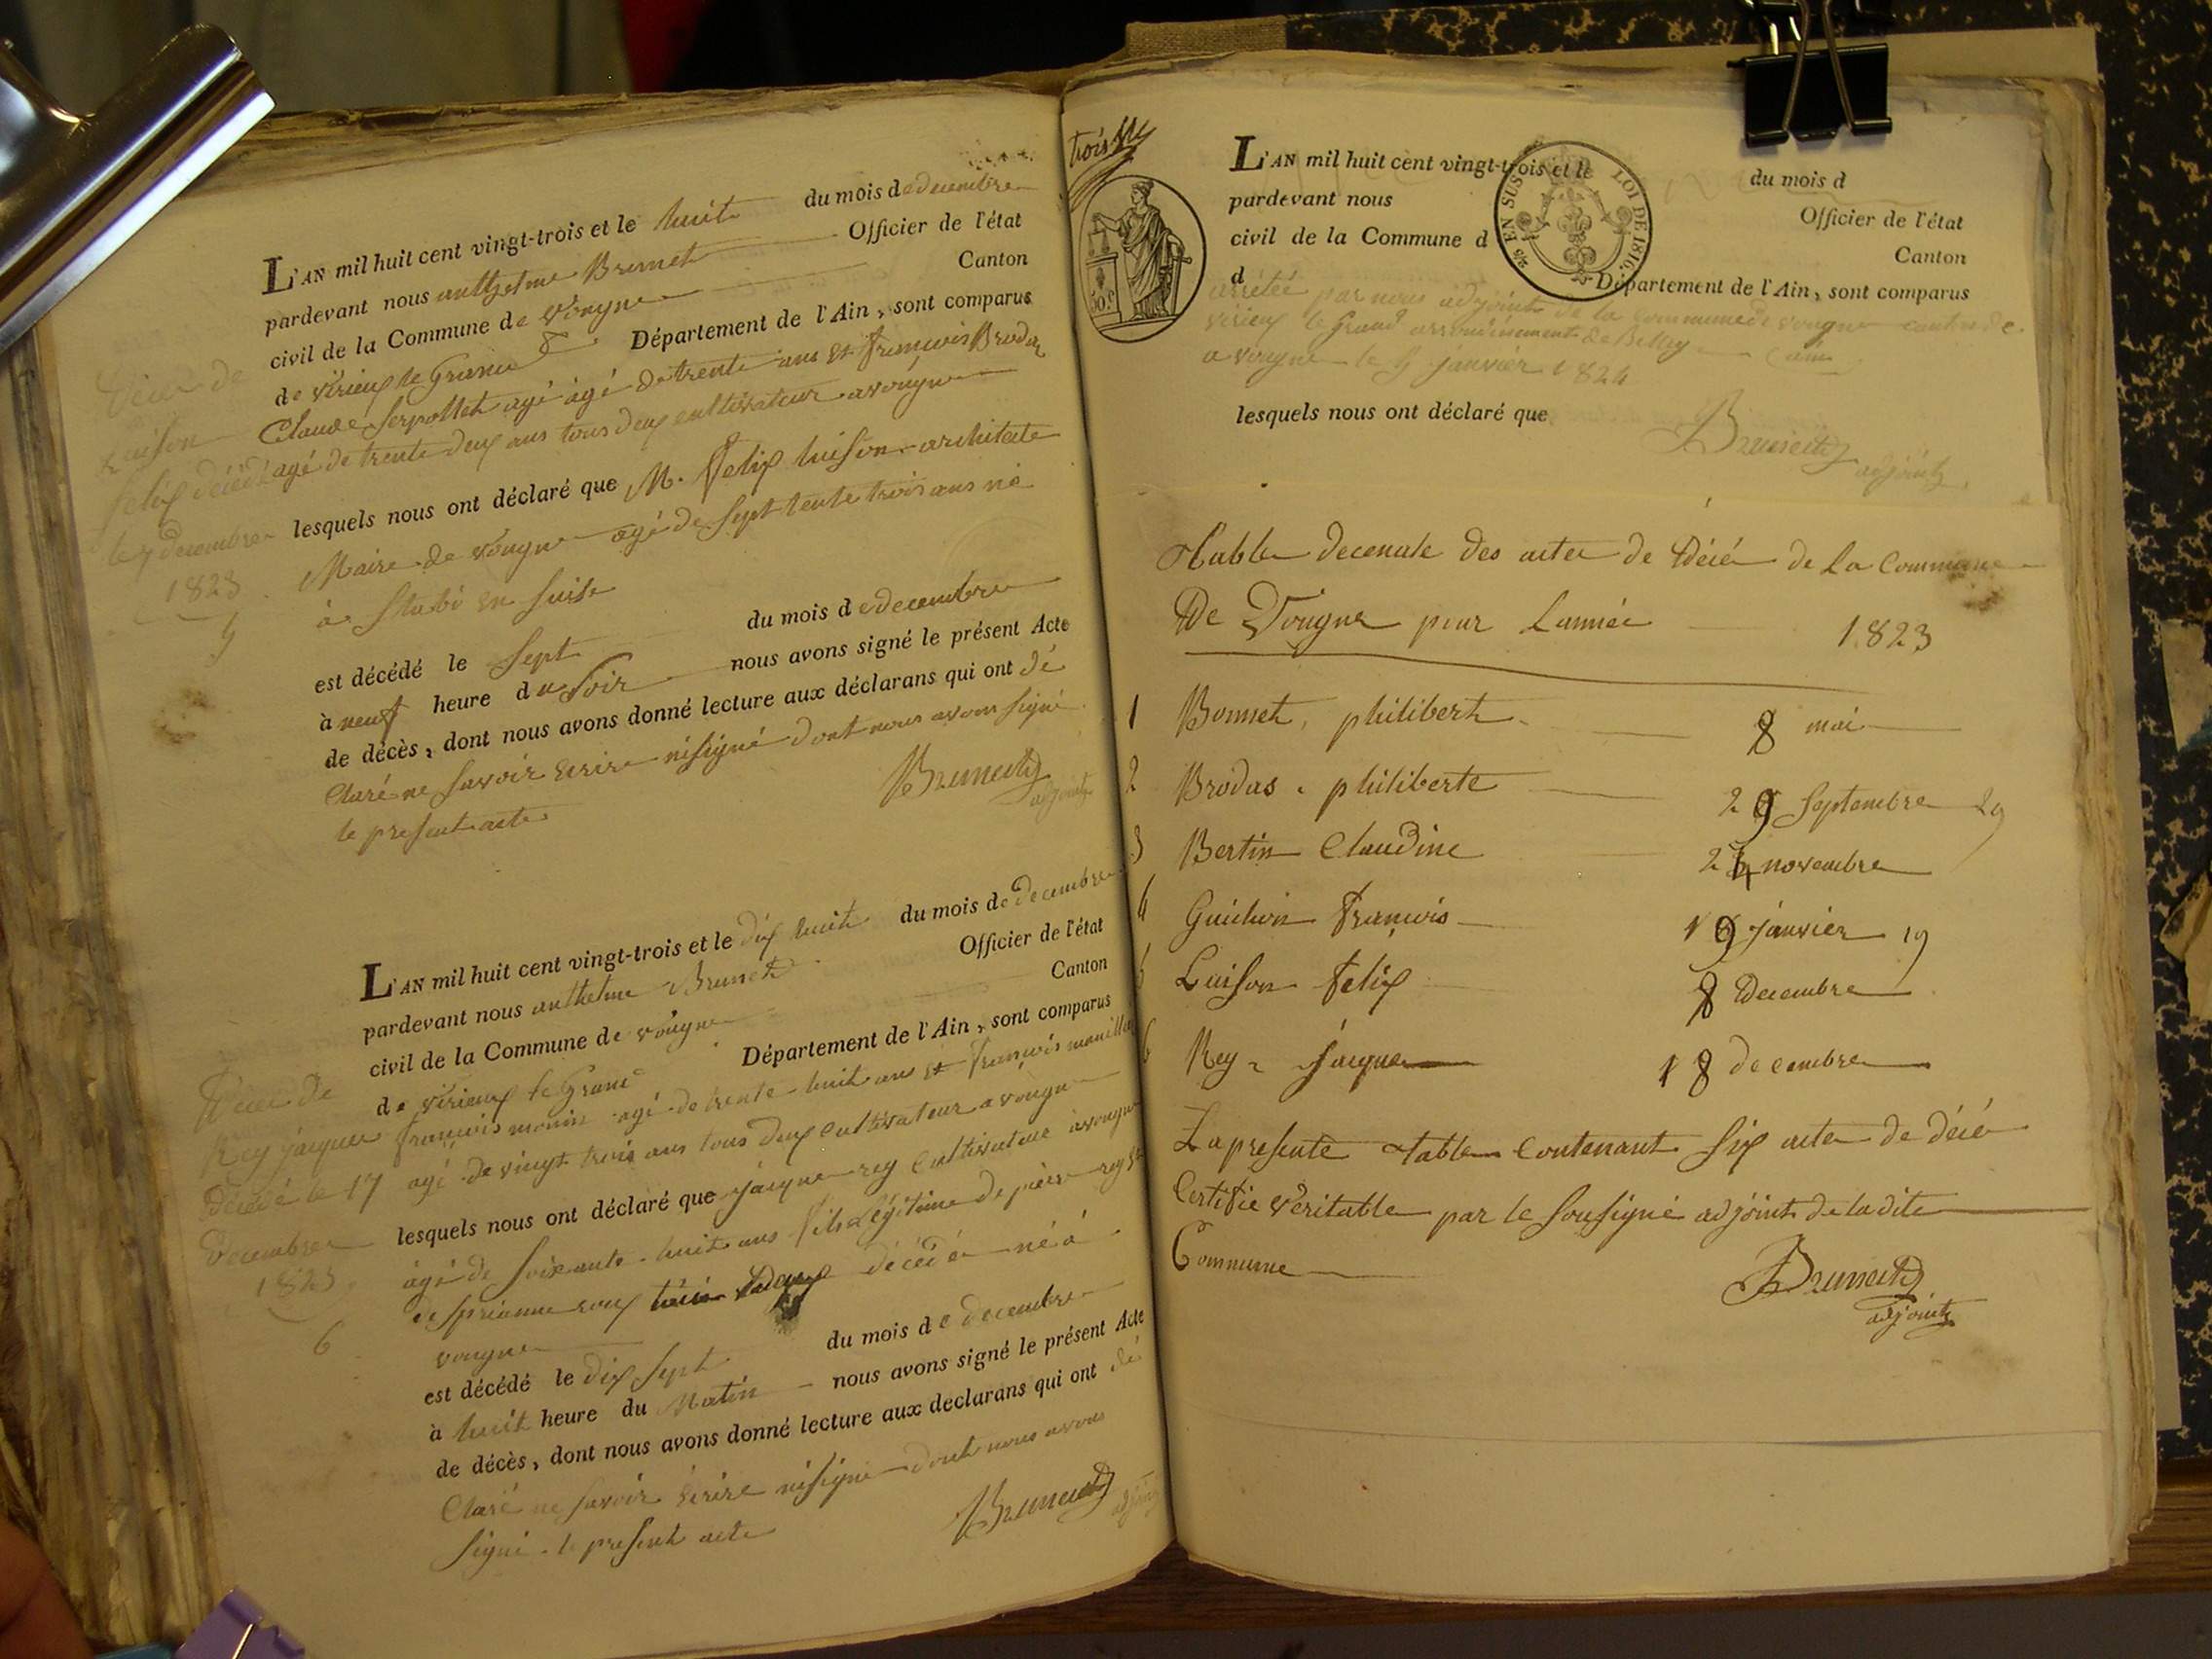 L'AN mil huit cent vingt-trois et le huit du mois de decembre
pardevant nous anthelme Brunet Officier de l'état
civil de la Commune de vongne Canton
de virieux le Grand Département de l'Ain, sont comparus
Claude serpollet agé âgé de trente ans et francois Brodas
agé de trente deux ans tous deux cultivateur a vongne
lesquels nous ont déclaré que M. Felix luison architate
Maire de vongne agé de sept tente trois ans né
à stabi en suise
est décédé le sept du mois de decembre
à neuf heure du soir nous avons signé le présent Acte
de décès, dont nous avons donné lecture aux déclarans qui ont dé
claré ne savoir ecrire ni signé dont nous avons signé
le present acte
Brunet
adjoint
Décé de
Luison
felix décédé
le 7 decembre
1823
5
L'AN mil huit cent vingt-trois et le dix huit du mois de decembre
pardevant nous anthelme Brunet Officier de l'état
civil de la Commune de vongne Canton
de virieux le Grand Département de l'Ain, sont comparus
francois monin agé de trente huit ans et francois
agé de vingt trois ans tous deux cultivateur a vongne
lesquels nous ont déclaré que jacque rey cultivateur à vongne
âgé de soixante huit ans fils Légitime de pierre rey et
de roux décédé né à
vongne
est décédé le dix sept du mois de decembre
à huit heure du Matin nous avons signé le présent Acte
de décès, dont nous avons donné lecture aux declarans qui ont dé
claré ne savoir ecrire ni signé dont nous avons
signé le present acte
Brunet
adjoint
Décé de
Rey jacques
Décédé le 17
Decembre
1823
6
trois
50 c.
L'AN mil huit cent vingt-trois et le du mois d
pardevant nous Officier de l'état
civil de la Commune d Canton
d Département de l'Ain, sont comparus
EN SUS LOI DE 1816.
arrêtée par nous adjoint de la commune de vongne canton de
virieux le Grand arrondissement de Belley ain
a vongne le 5 janvier 1824
lesquels nous ont déclaré que
Brunet
adjoint
Table decenale des actes de Décé de La Commune
De Vongne pour L'année 1823
1 Bonnet, philibert 8 mai
2 Brodas philiberte 29 Septembre 29
3 Bertin Claudine 24 novembre
4 Guichon Francois 19 janvier 19
5 Luison Felix 8 Decembre
6 Rey Jacque 18 decembre
La presente table Contenant six actes de décé
Certifie veritable par le soussigné adjoint de la dite
Commune
Brunet
adjoint